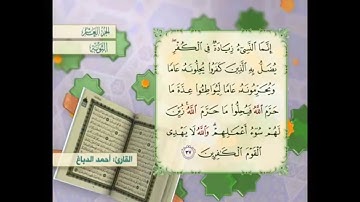 الجزء العاشر
التوبة
إِنَّمَا ٱلنَّسِىٓءُ زِيَادَةٌ فِى ٱلْكُفْرِ
يُضَلُّ بِهِ ٱلَّذِينَ كَفَرُوا۟ يُحِلُّونَهُۥ عَامًا
وَيُحَرِّمُونَهُۥ عَامًا لِّيُوَاطِـُٔوا۟ عِدَّةَ مَا
حَرَّمَ ٱللَّهُ فَيُحِلُّوا۟ مَا حَرَّمَ ٱللَّهُ زُيِّنَ
لَهُمْ سُوٓءُ أَعْمَـٰلِهِمْ وَٱللَّهُ لَا يَهْدِى
ٱلْقَوْمَ ٱلْكَـٰفِرِينَ ٣٧
القارئ: أحمد الدباغ